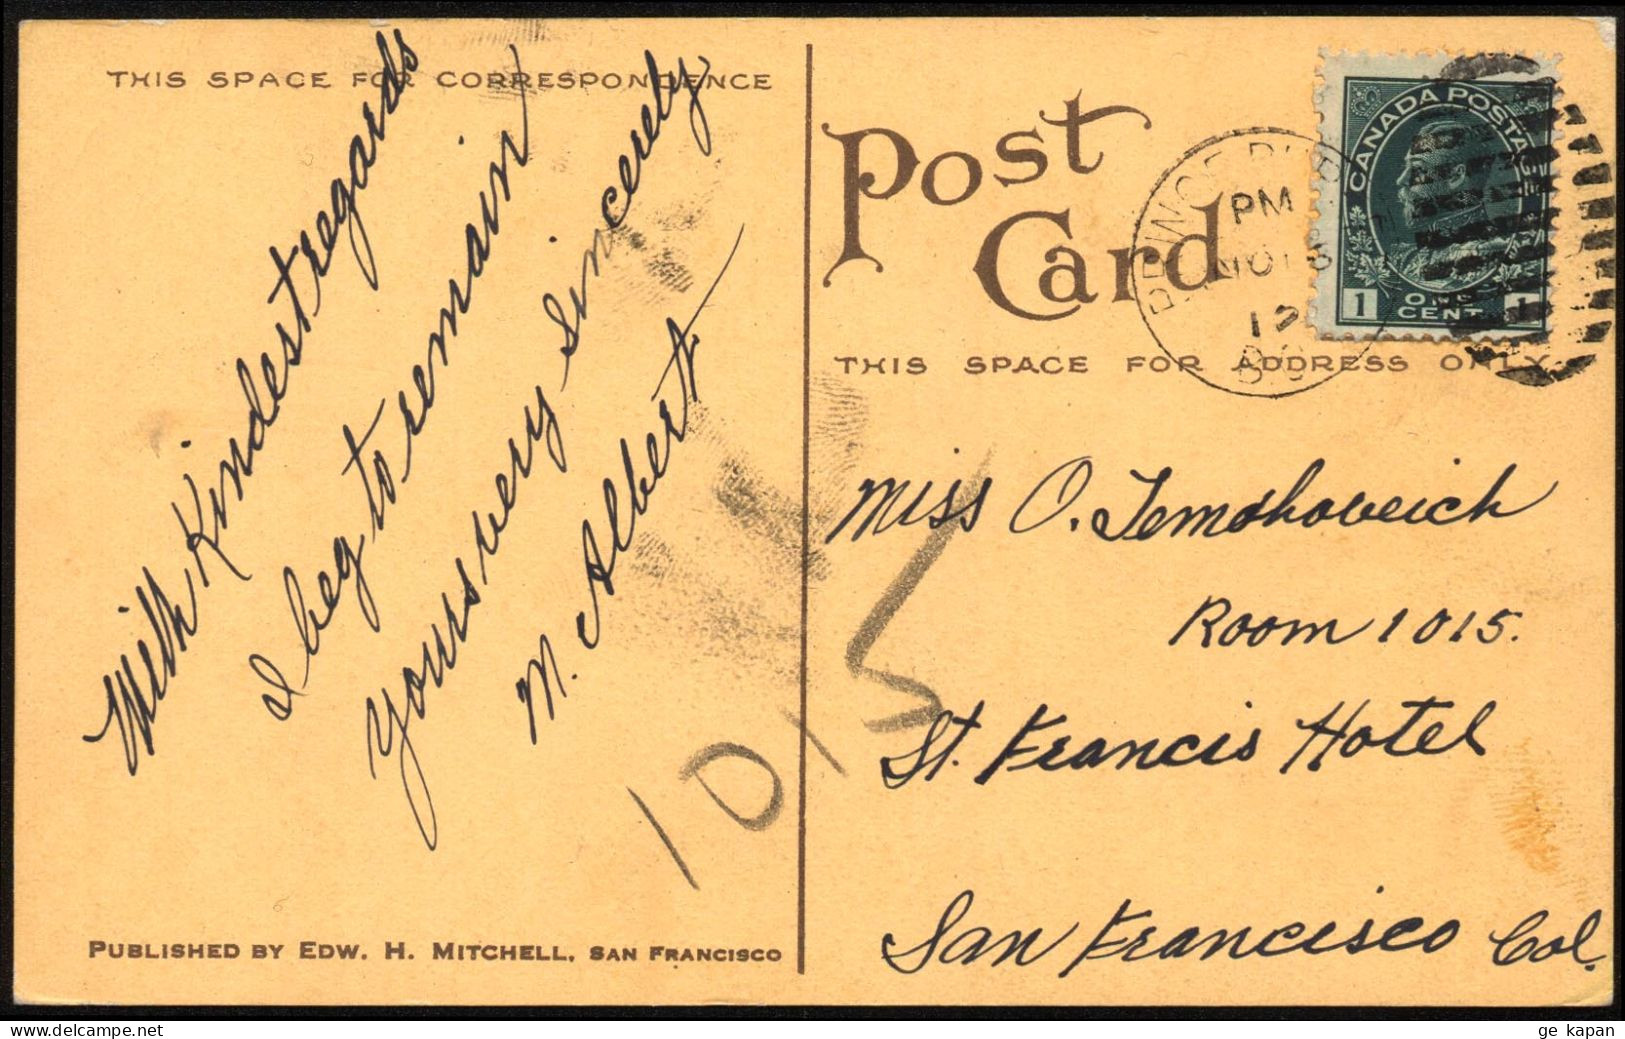 THIS SPACE FOR CORRESPONDENCE
With Kindest regards
I beg to remain
yours very Sincerely
M. Albert
1015
PUBLISHED BY EDW. H. MITCHELL, SAN FRANCISCO
Post
Card
THIS SPACE FOR ADDRESS ONLY
CANADA POSTAGE
1 ONE CENT 1
PRINCE RU
PM
12
Miss O. Temohoveich
Room 1015.
St. Francis Hotel
San Francisco Cal.
ge kapan